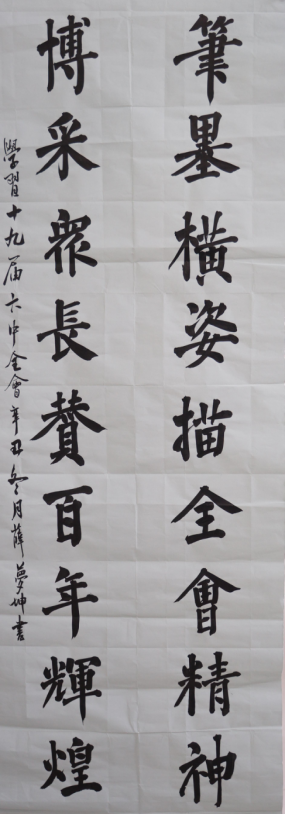 筆墨橫姿描全會精神
博采衆長贊百年輝煌
學習十九届六中全會辛丑冬月薛夢坤書